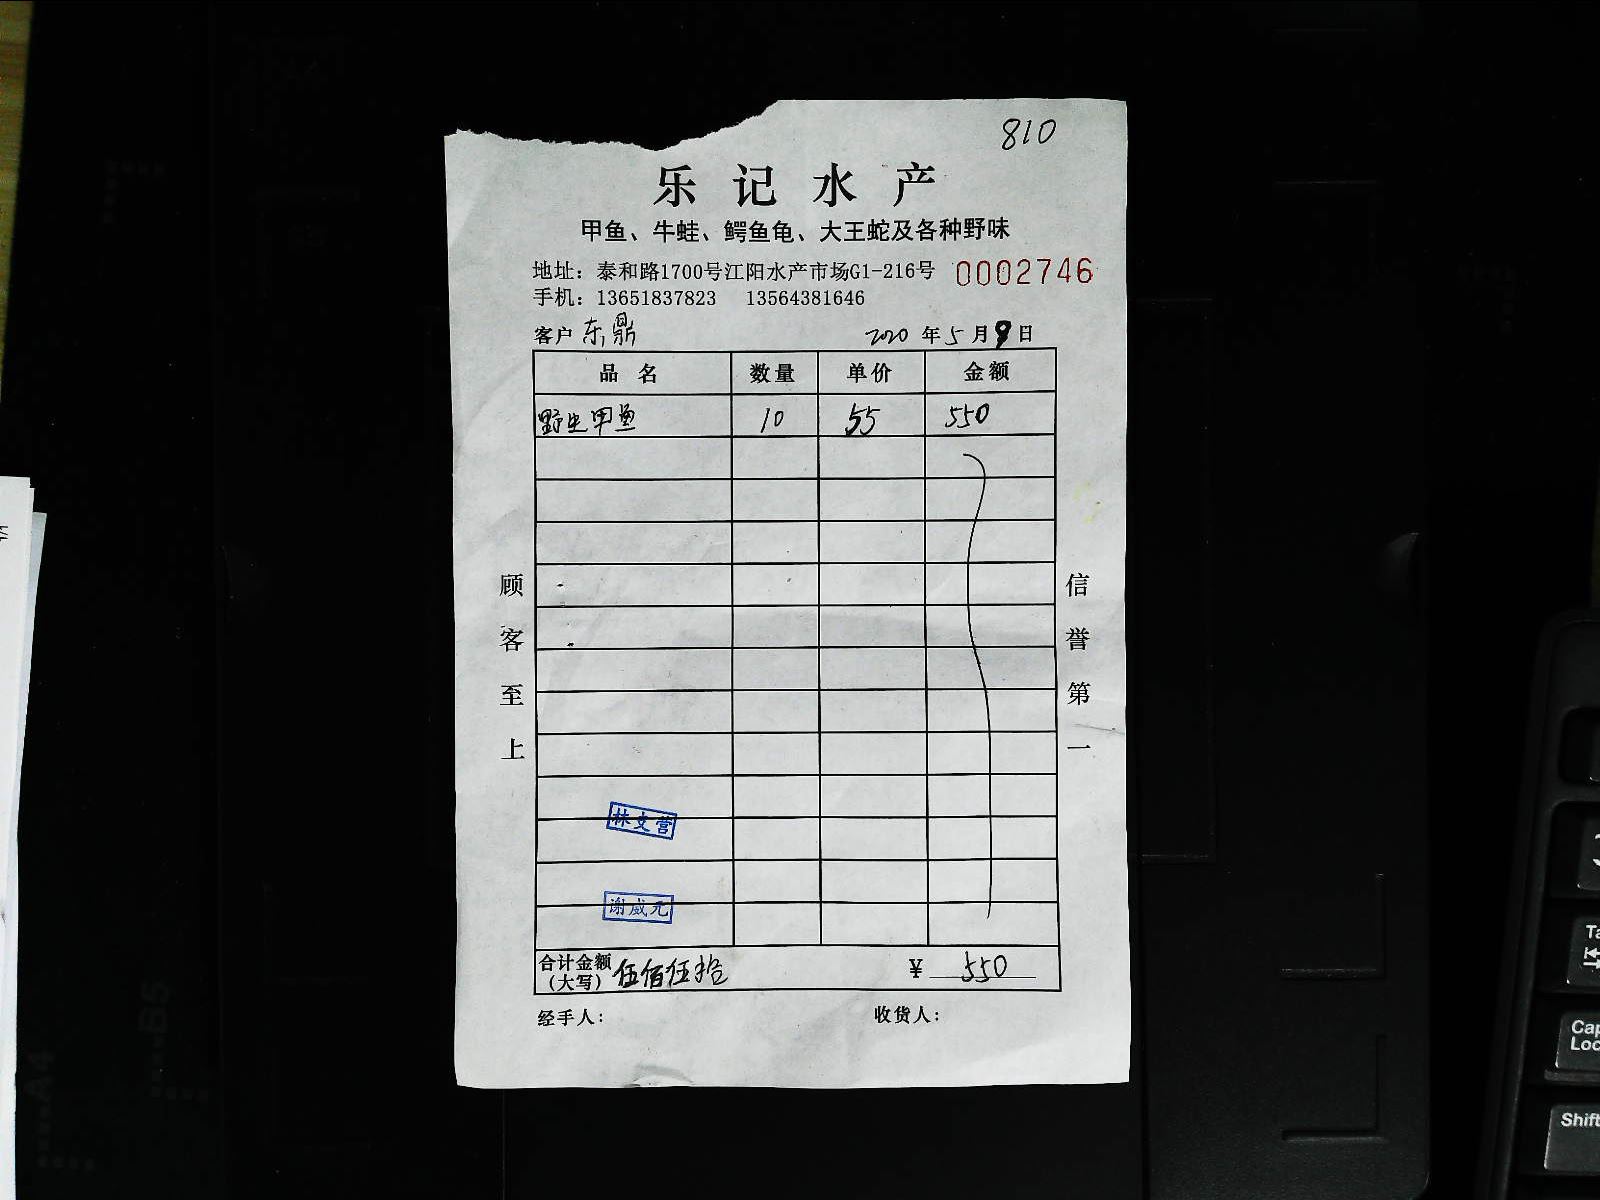 810
乐记水产
甲鱼、牛蛙、鳄鱼龟、大王蛇及各种野味
地址：泰和路1700号江阳水产市场G1-216号 0002746
手机：13651837823 13564381646
客户 东鼎 2020 年 5 月 9 日
品名 数量 单价 金额
野生甲鱼 10 55 550
顾客至上
信誉第一
林支营
谢威元
合计金额（大写） 伍佰伍拾 ¥ 550
经手人： 收货人：
A4
B5
Cap
Loc
Shift